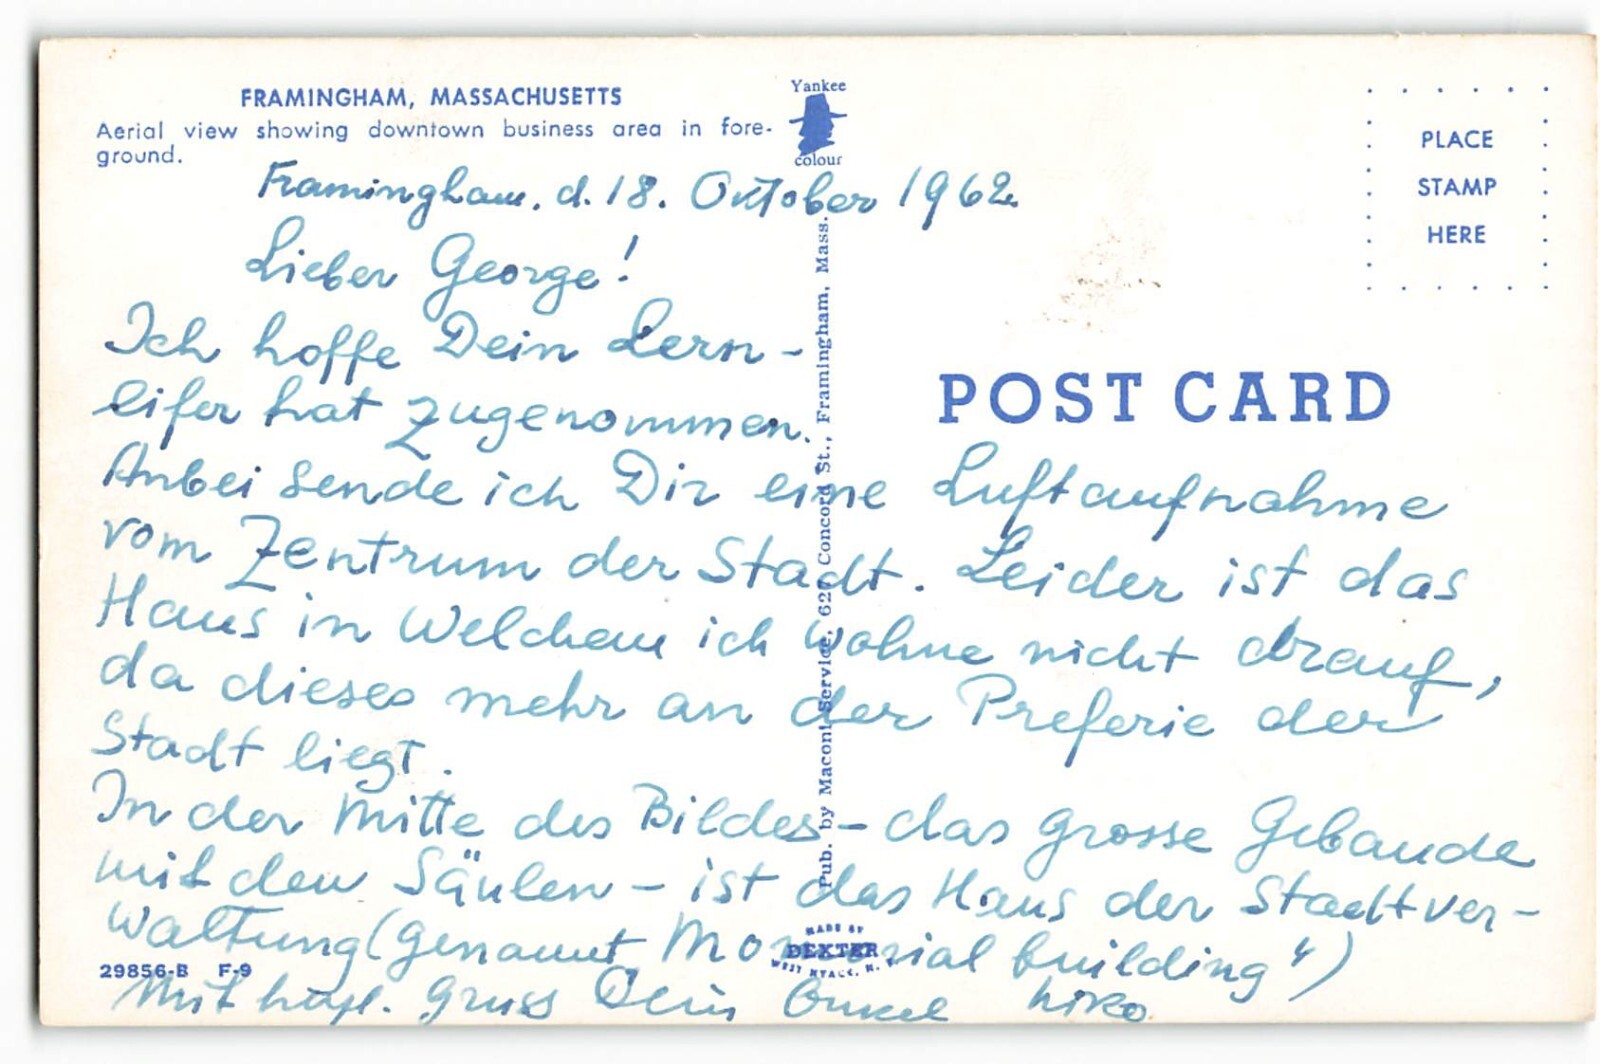 FRAMINGHAM, MASSACHUSETTS
Aerial view showing downtown business area in fore-
ground.
Yankee
colour
PLACE
STAMP
HERE
POST CARD
Framingham. d. 18. Oktober 1962.
Lieber George!
Ich hoffe Dein Lern-
eifer hat zugenommen.
Anbei sende ich Dir eine Luftaufnahme
vom Zentrum der Stadt. Leider ist das
Haus in Welchem ich wohne nicht drauf,
da dieses mehr an der Preferie der
Stadt liegt.
In der Mitte des Bildes – das grosse Gebaude
mit den Säulen – ist das Haus der Stadtver-
waltung (genannt Memorial building")
Mit herzl. Gruss Dein Onkel
Pub. by Maconi Service, 627 Concord St., Framingham, Mass.
MADE BY
DEXTER
WEST NYACK, N. Y.
29856-B F-9